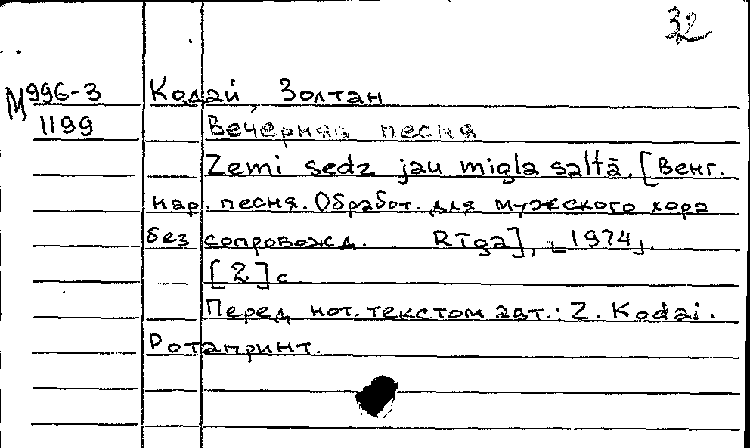 32
М996-3 Кодай, Золтан
1199 Вечерняя песня
Zemi sedz jau migla saltā. [Венг.
нар. песня. Обработ. для мужского хора
без сопровожд. Rīgа], [1974].
[2] с.
Перед нот. текстом авт.: Z. Kodai.
Ротапринт.